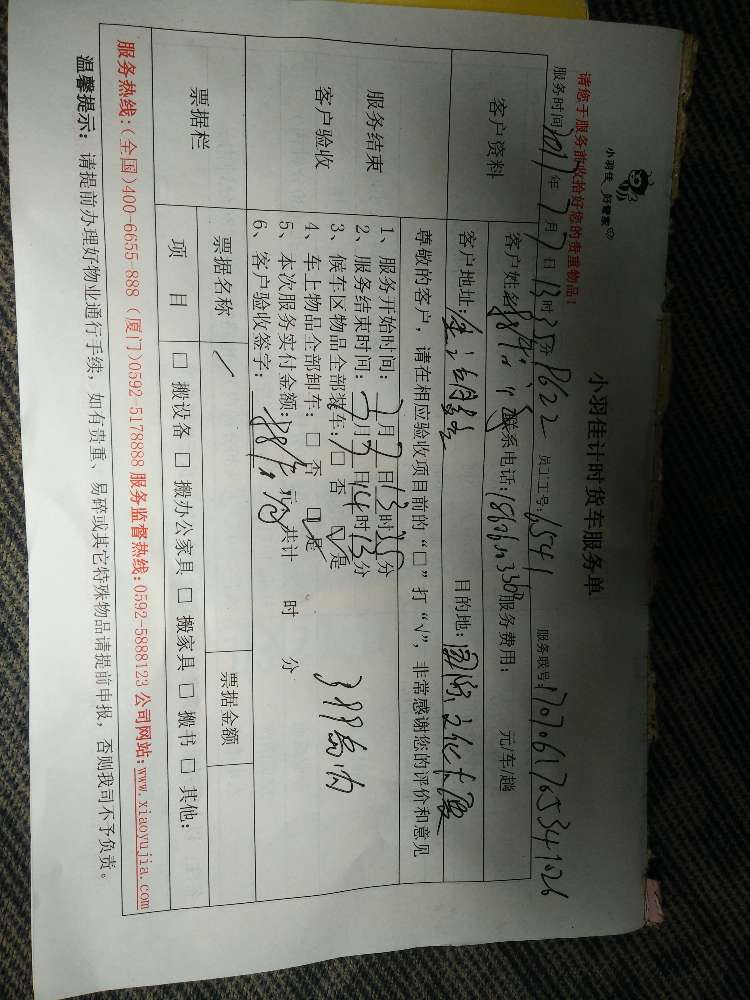 小羽佳 好管家
小羽佳计时货车服务单
请您于服务前收拾好您的贵重物品！
服务时间 2017年 7月 7日 13时 35分 8622 员工工号: 6541 服务联号:
客户资料
客户姓名: 联系电话: 服务费用: 元/车/趟
客户地址: 目的地: 国际文化大厦
服务结束
客户验收
尊敬的客户，请在相应验收项目前的“□”打“√”，非常感谢您的评价和意见
1、服务开始时间: 7月 7日 13时 35分
2、服务结束时间: 7月 7日 14时 13分
3、候车区物品全部装车: □ 否 □ 是
4、车上物品全部卸车: □ 否 □ 是
5、本次服务实付金额: 元 共计 时 分
6、客户验收签字:
票据栏
票据名称 / 票据金额
项 目 □ 搬设备 □ 搬办公家具 □ 搬家具 □ 搬书 □ 其他:
服务热线:(全国)400-6655-888 (厦门)0592-5178888 服务监督热线:0592-5888123 公司网站:www.xiaoyujia.com
温馨提示: 请提前办理好物业通行手续，如有贵重、易碎或其它特殊物品请提前申报，否则我司不予负责。